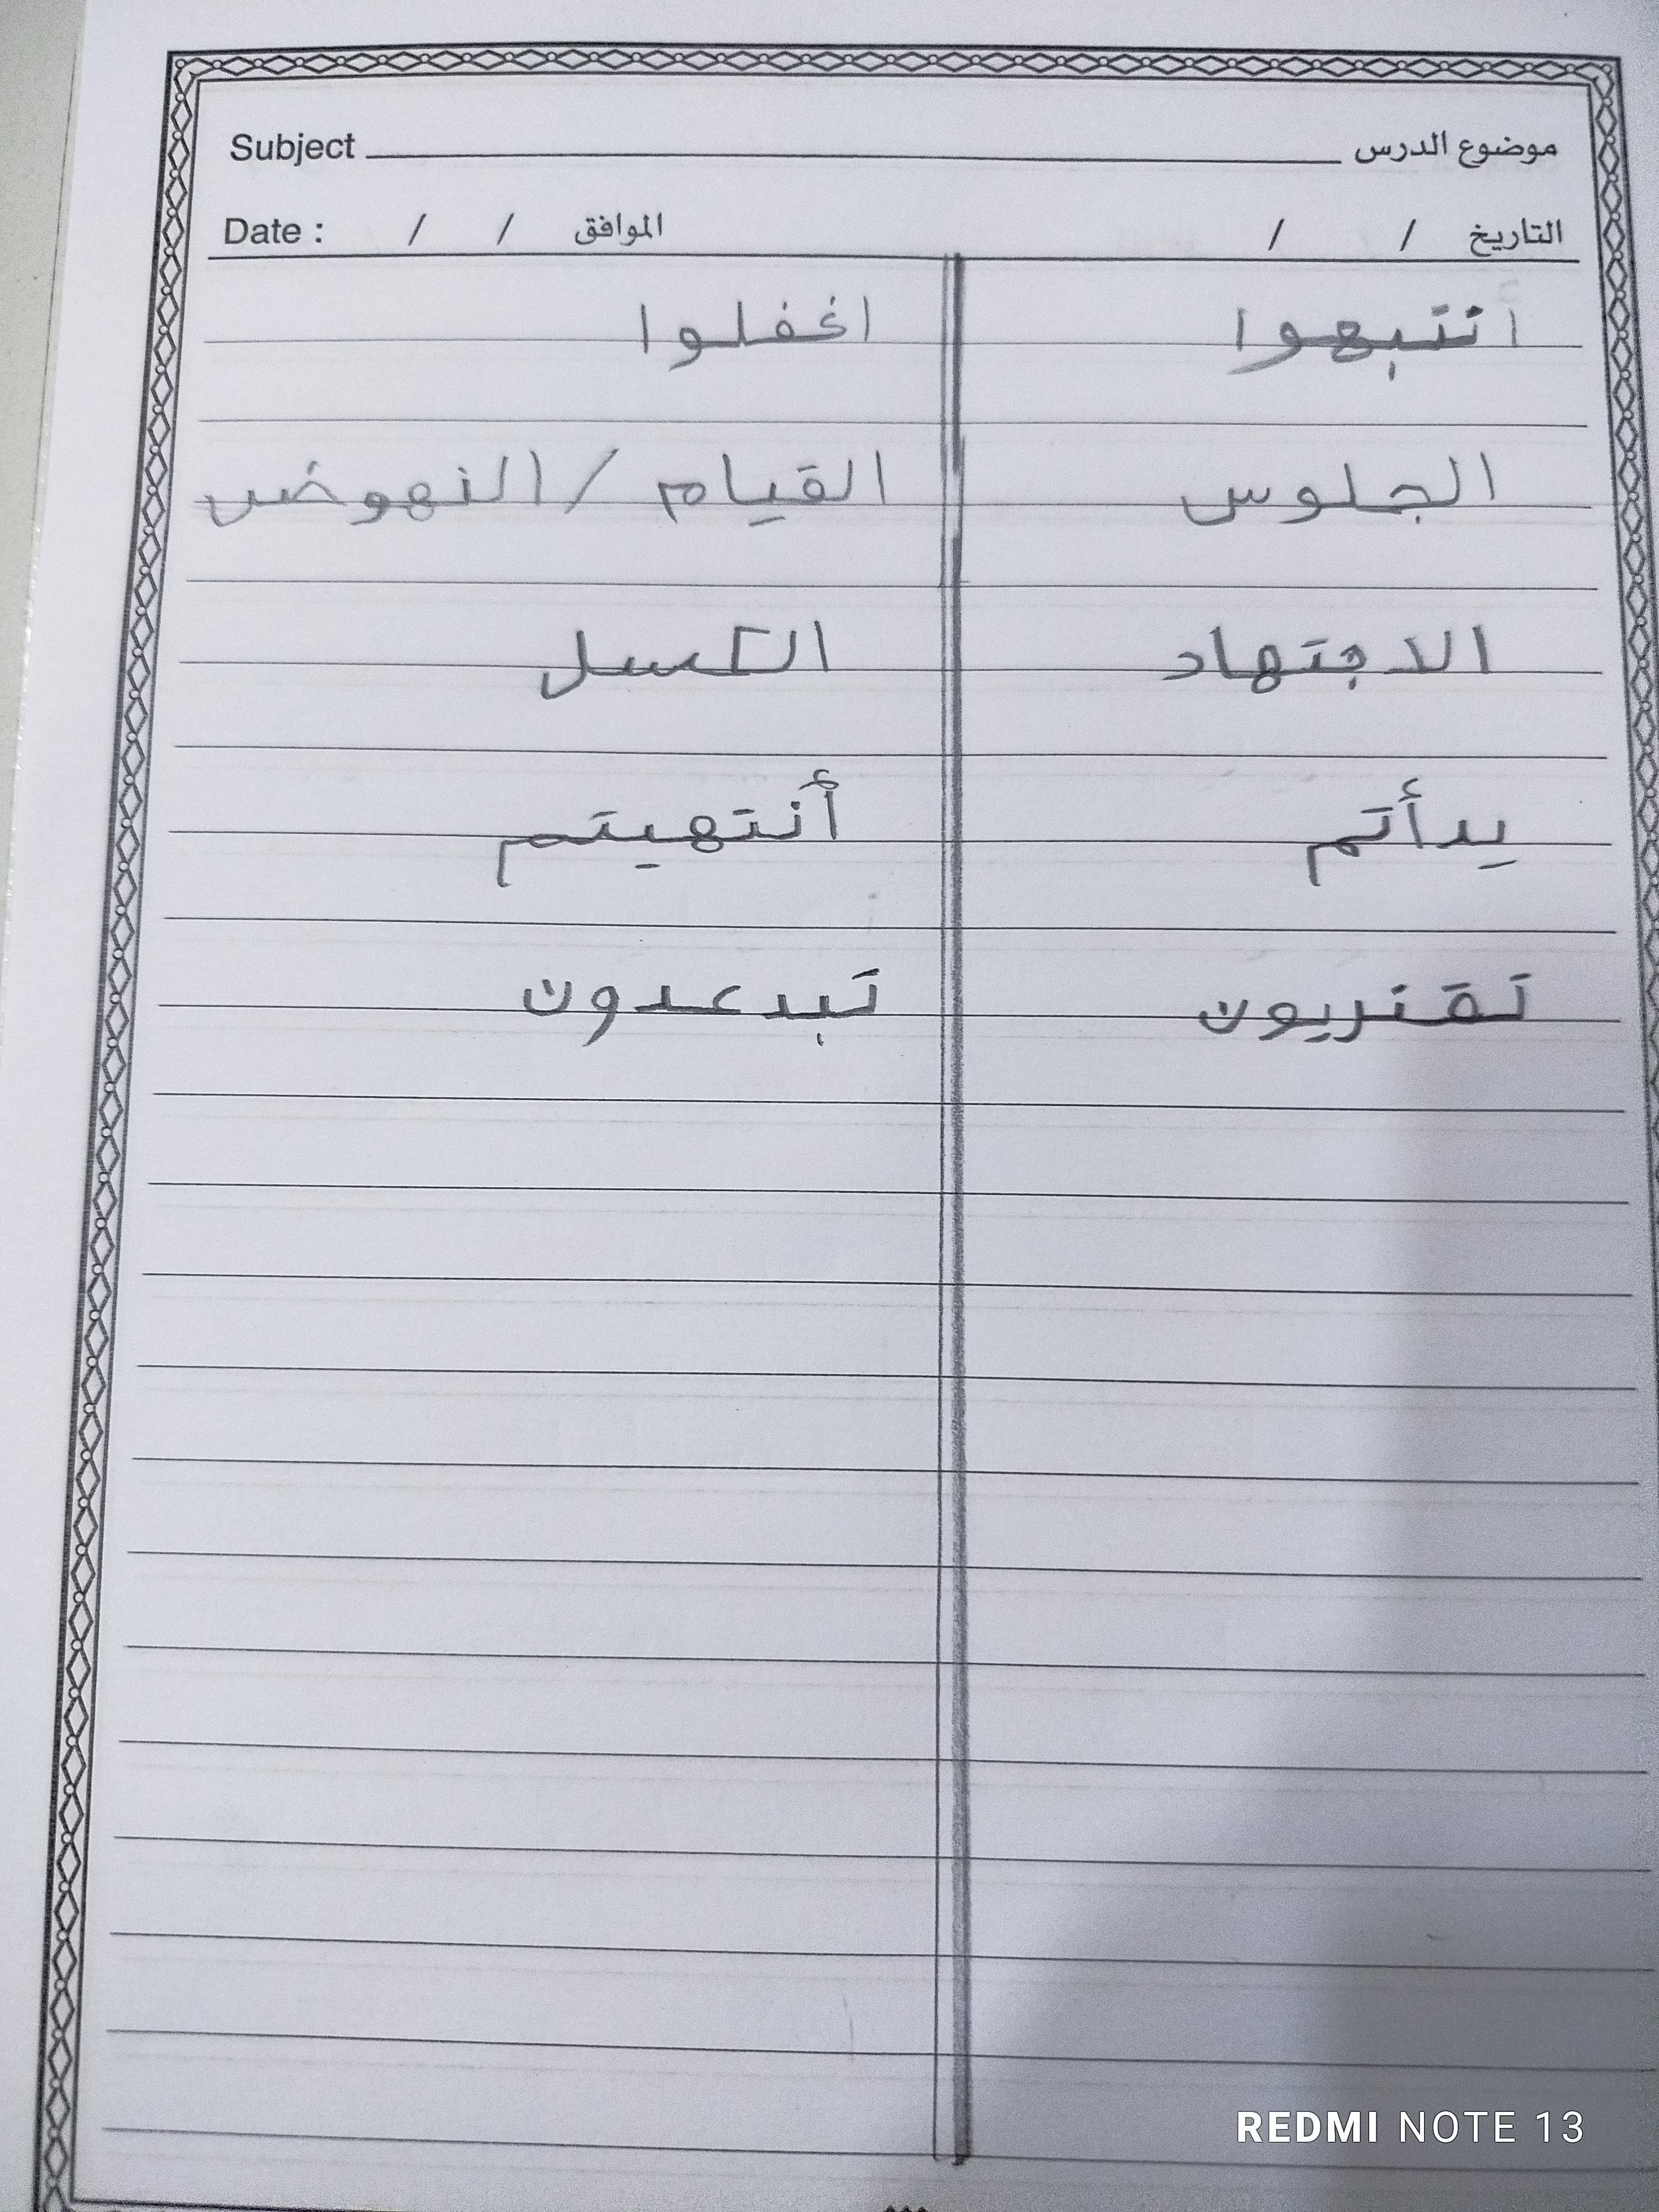 Subject موضوع الدرس
Date : / / الموافق / / التاريخ
انتبهوا اغفلوا
الجلوس القيام / النهوض
الاجتهاد الكسل
يدأتم أنتهيتم
تقتربون تبدعدون
REDMI NOTE 13